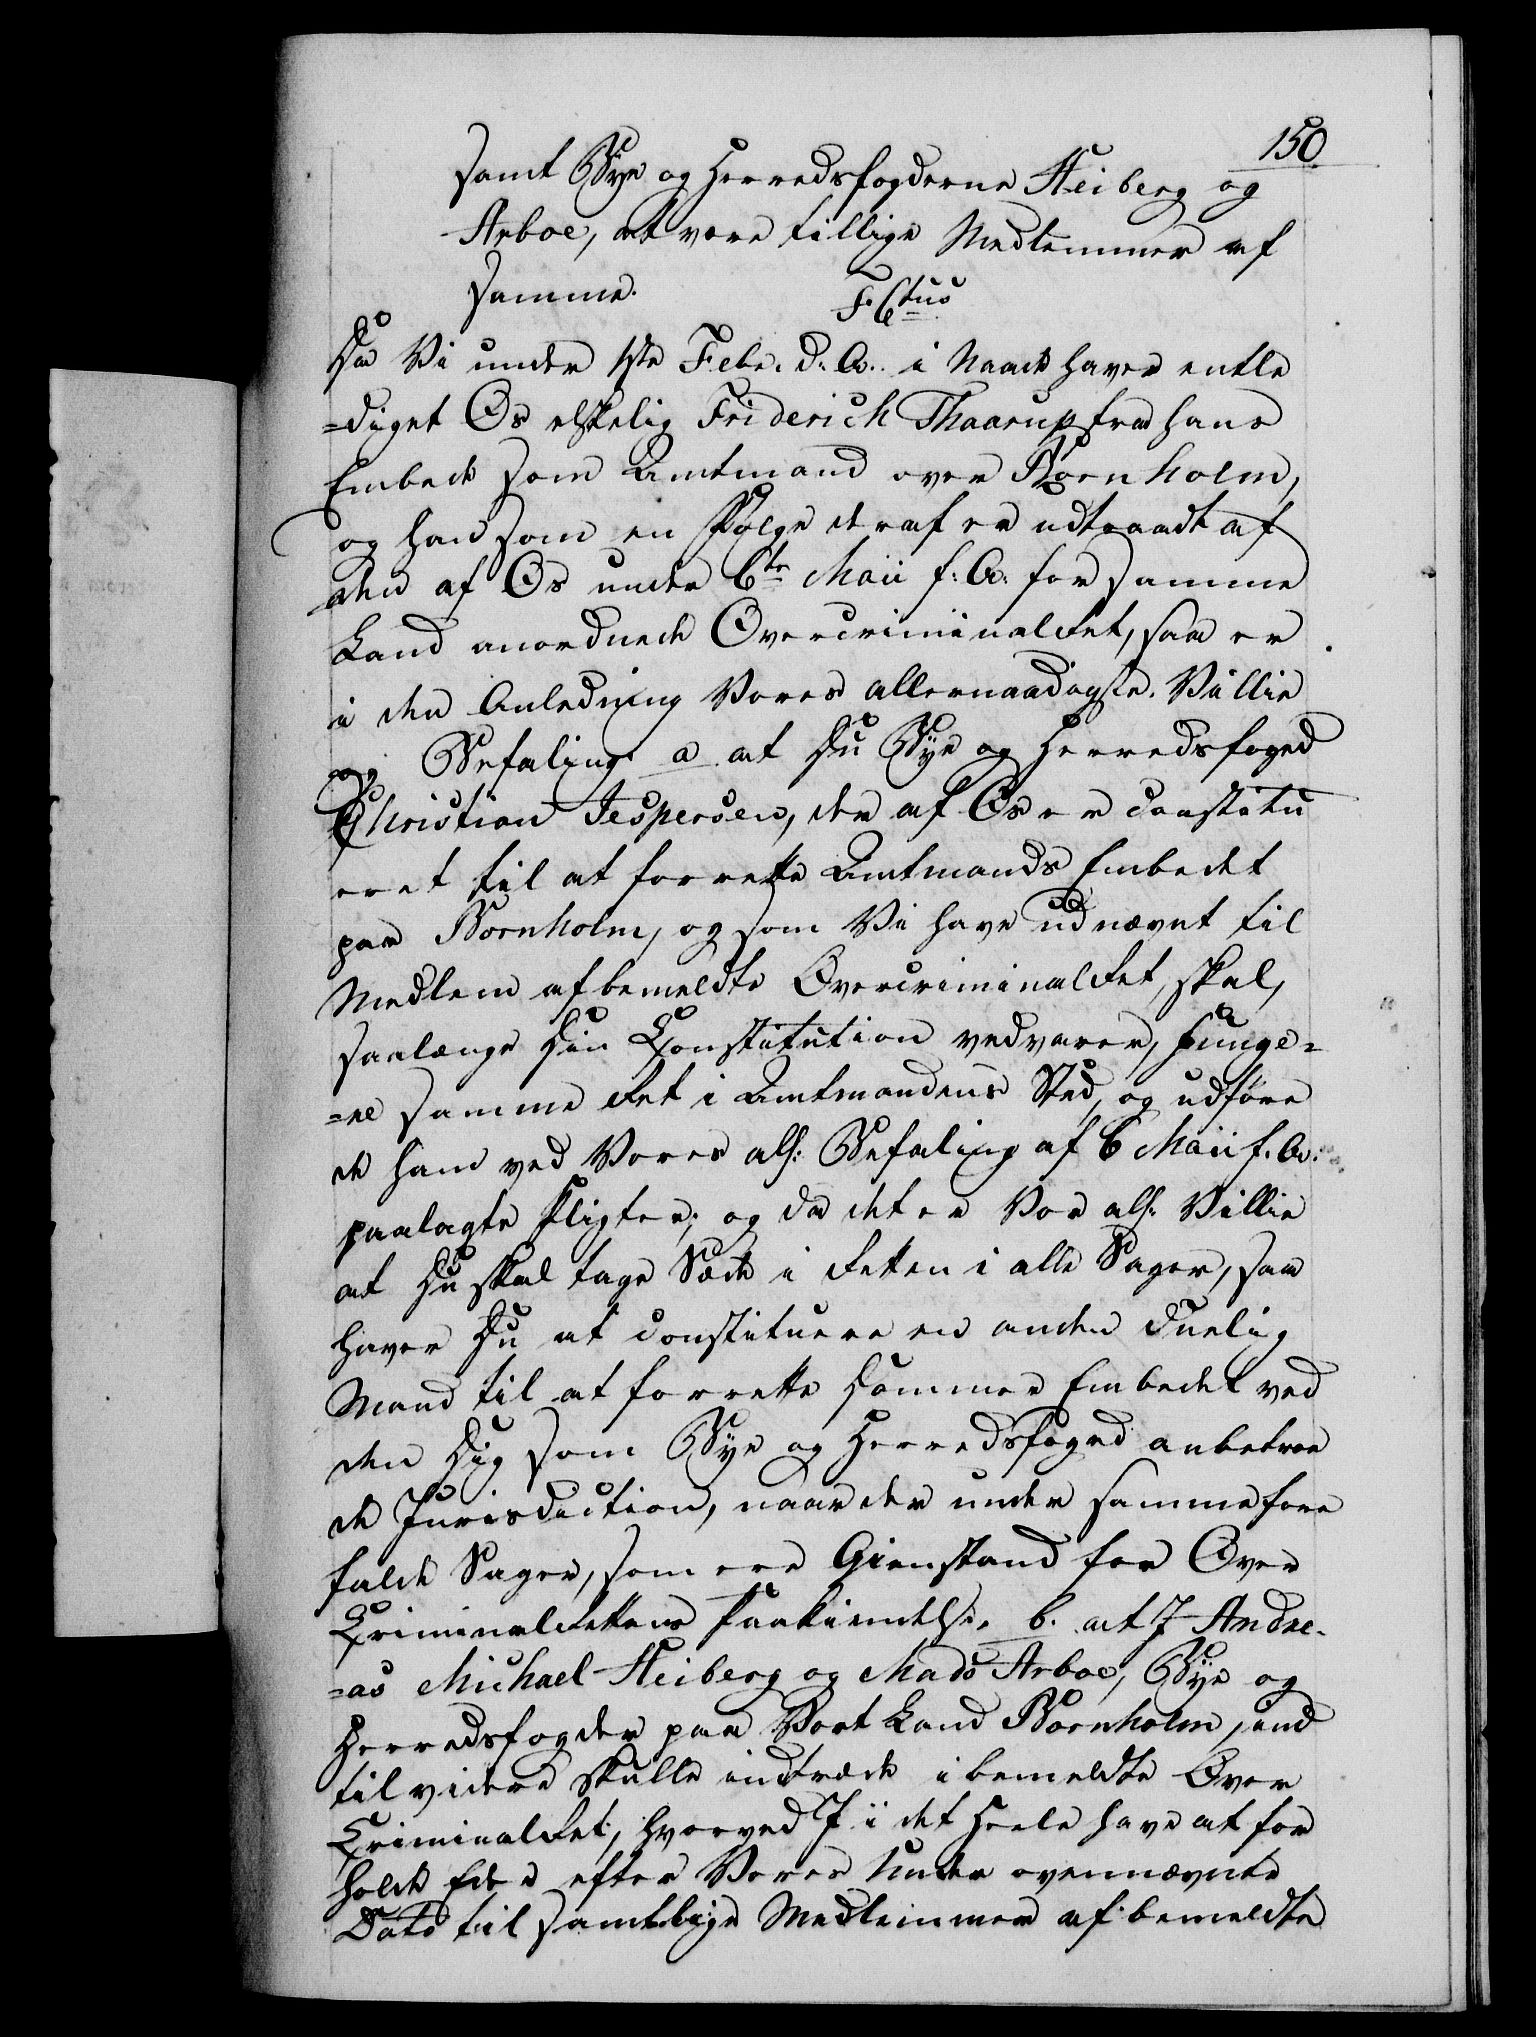 150
samt Bye og Herredsfogderne Heiberg og
Arboe, at være tillige Medlemmer af
samme.
F. 6tus
Da Vi under 1ste Febr. d: A: i Naade haver entle
=diget Os elskelig Friderich Thaarup fra hans
Embede som Amtmand over Bornholm,
og han som en Følge deraf er udtraadt af
den af Os under 6te Maii f: A: for samme
Land anordnede Overcriminalret, saa er
i den Anledning Vores allernaadigste Villie
og Befaling a at Du Bye og Herredsfoged
Christian Jespersen, der af Os er constitu
eret til at forrette Amtmands Embedet
paa Bornholm, og som Vi have udnævnt til
Medlem af bemeldte Overcriminalret, skal,
saalænge Din Constitution vedvarer, funge=
=re samme Ret i Amtmandens Sted, og udføre
de ham ved Vores all: Befaling af 6 Maii f. A:
paalagte Pligter; og da det er Vor all: Villie
at Du skal tage Sæde i Retten i alle Sager, saa
haver Du at constituere en anden duelig
Mand til at forrette Dommer Embedet ved
den Dig som Bye og Herredsfoged anbetroe
de Jurisdiction, naar der under samme fore
falde Sager, som ere Gienstand for Over
Criminalrettens Paakiendelse. b. at I Andre-
=as Michael Heiberg og Mads Arboe, Bye og
Herredsfogder paa Vort Land Bornholm, ind
til videre skulle indtræde i bemeldte Over
Criminalret, hvorved I i det Heele have at for
holde Eder efter Vores under ovennævnte
Dato til samtlige Medlemmer af bemeldte